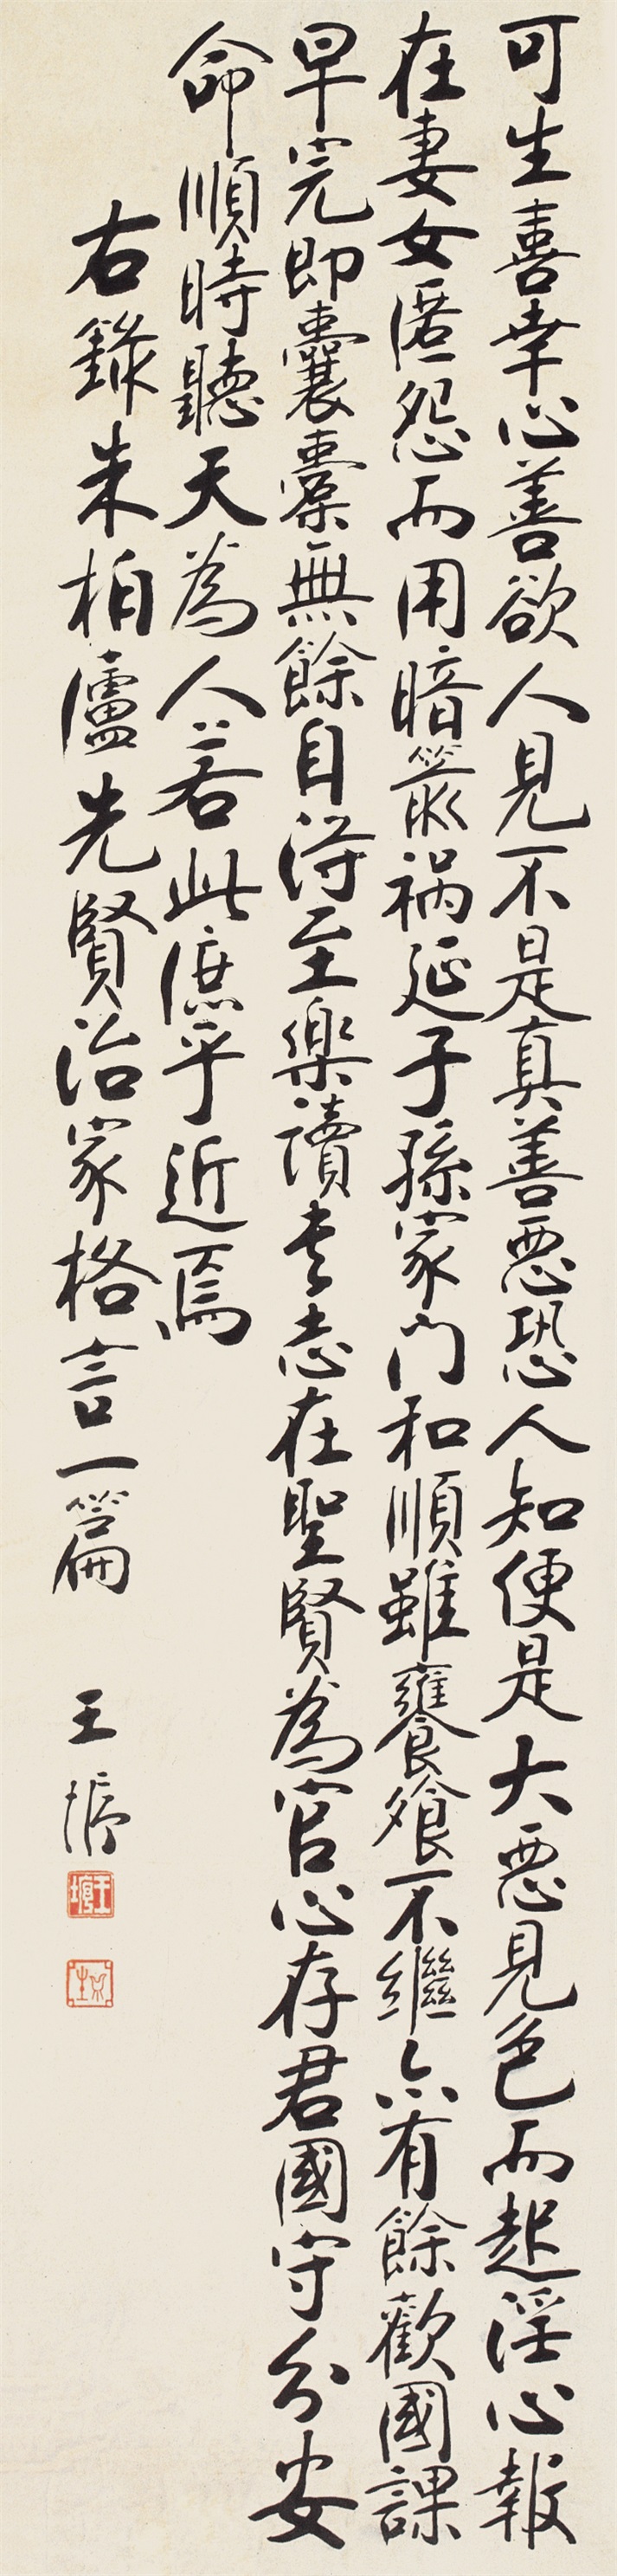 可生喜幸心善欲人見不是真善惡恐人知便是大惡見色而起淫心報
在妻女匿怨而用暗箭禍延子孫家門和順雖饔飧不繼亦有餘歡國課
早完即囊橐無餘自得至樂讀書志在聖賢為官心存君國守分安
命順時聽天為人若此庶乎近焉
右錄朱柏廬先賢治家格言一篇
王垿
王垿